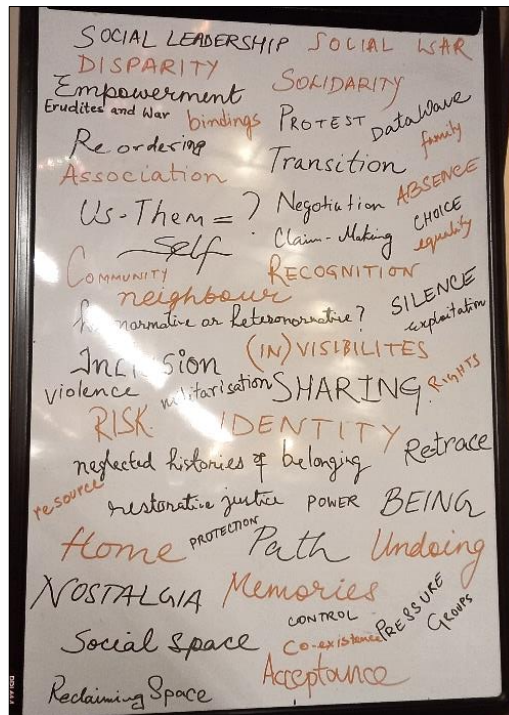 SOCIAL LEADERSHIP SOCIAL WAR
DISPARITY
SOLIDARITY
Empowerment
Erudites and War bindings PROTEST DataWave
family
Reordering
Transition
Association
ABSENCE
Us-Them = ? Negotiation
CHOICE
Self Claim-Making equality
COMMUNITY RECOGNITION
neighbour
SILENCE
normative or heteronormative? exploitation
Inclusion (IN)VISIBILITES
violence militarisation SHARING RIGHTS
RISK. IDENTITY
neglected histories of belonging Retrace
resource
restorative justice POWER BEING
Home PROTECTION Path Undoing
NOSTALGIA Memories
CONTROL PRESSURE GROUPS
Social Space Co-existence
Acceptance
Reclaiming Space